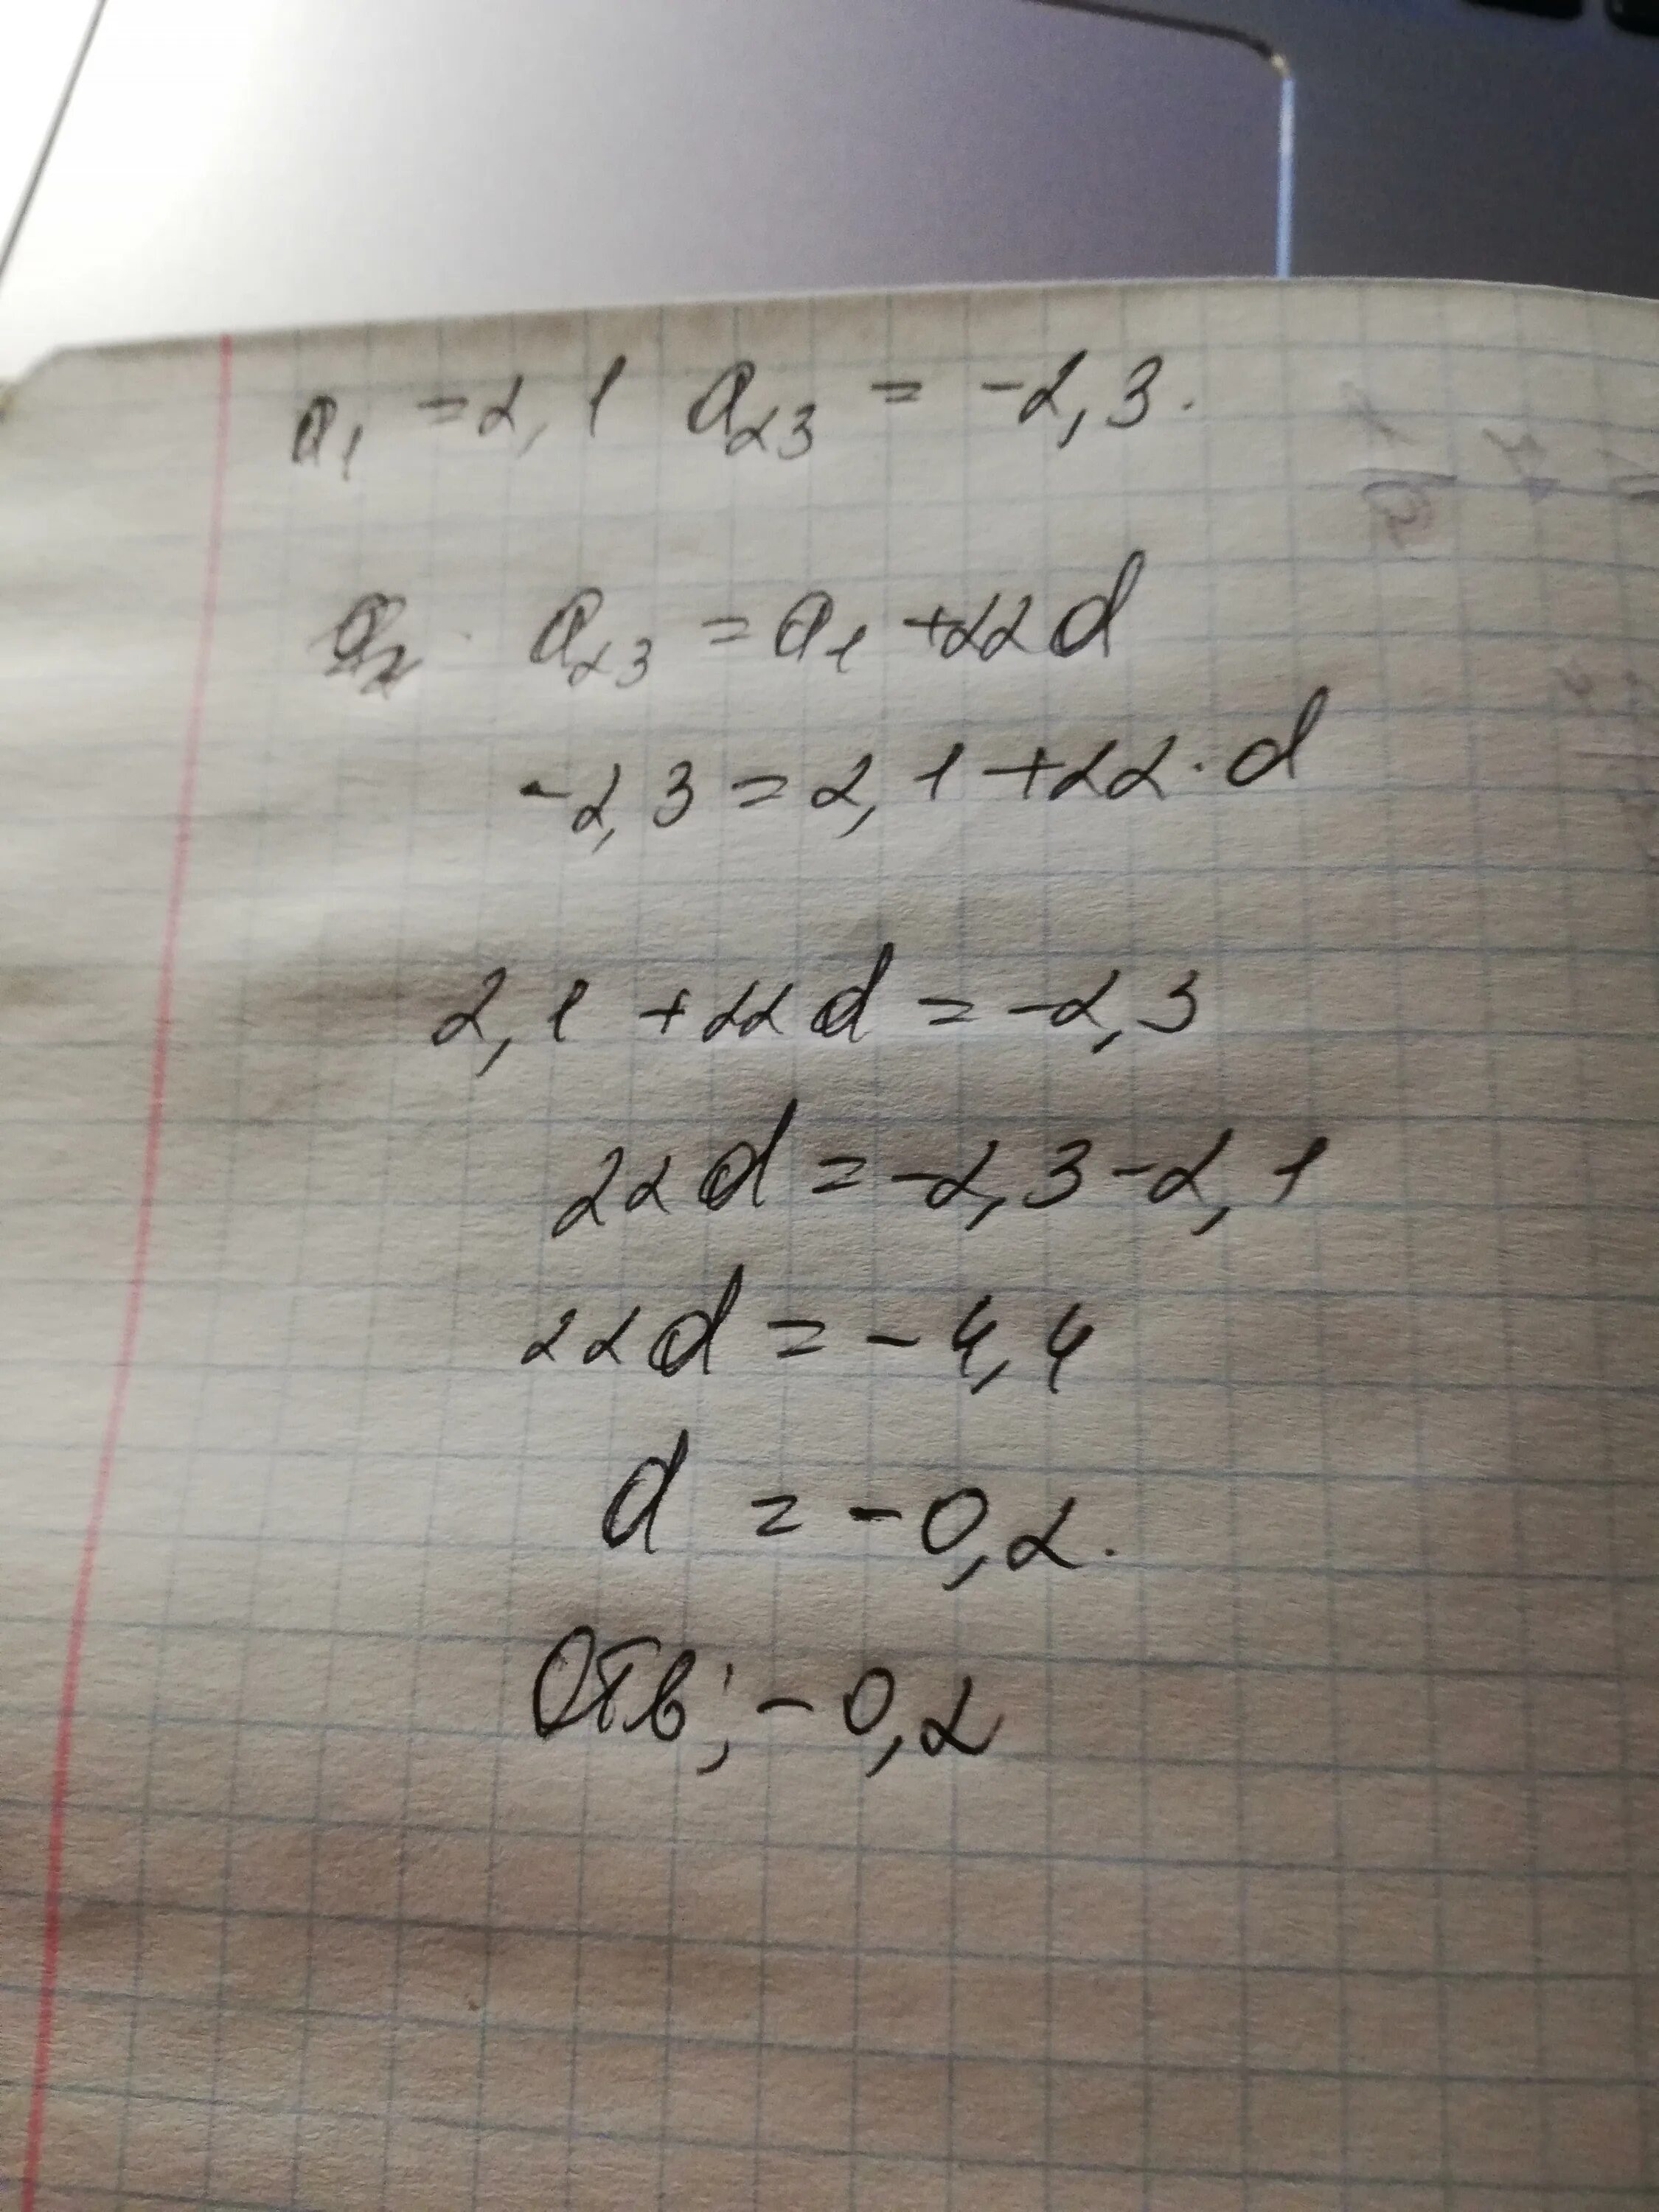 a₁ = 2,1 a₂₃ = -2,3.
a₂₃ = a₁ + 22d
-2,3 = 2,1 + 22 · d
2,1 + 22d = -2,3
22d = -2,3 - 2,1
22d = -4,4
d = -0,2.
Отв; -0,2